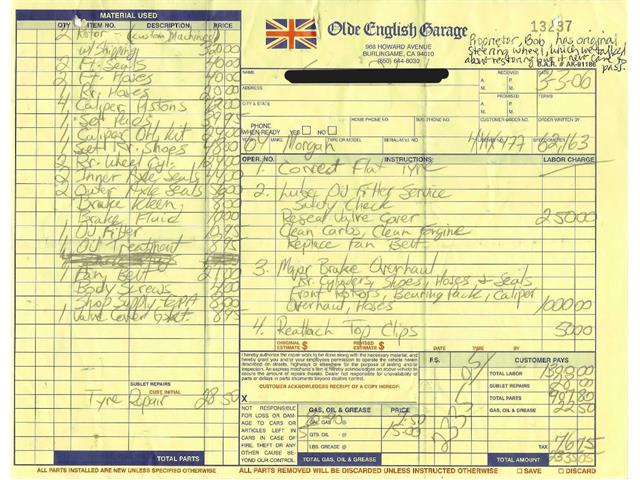 MATERIAL USED
QTY ITEM NO. DESCRIPTION PRICE
2 Rotor - (custom Machined
w/ Shipping)
2 Ft. Seals 4000
2 Ft. Hoses 4000
1 Rr. Hoses 2000
4 Caliper Pistons
1 Set Pads
1 Caliper O/H Kit
1 Set Rr. Shoes 4800
2 Rr. Wheel Cyl.
2 Inner Axle Seals
2 Outer Axle Seals
Brake Kleen, 800
Brake Fluid 1000
1 Oil Filter 1295
1 Oil Treatment 895
1 Fan Belt 2100
Body Screws 400
Shop Supply EPA 800
1 Valve Cover Gasket. 895
SUBLET REPAIRS
Tyre Repair 28 50
TOTAL PARTS
Olde English Garage
968 HOWARD AVENUE
BURLINGAME, CA 94010
(650) 644-8030
13237
Proprietor, Bob, has original
steering wheel, which we talked
about restoring over if new came to
pass.
B.A.R. # AK-91186
NAME
ADDRESS
CITY & STATE
RECEIVED
A. M.
P. M.
DATE
5-5-06
PROMISED
A. M.
P. M.
TERMS
PHONE WHEN READY YES NO
HOME PHONE NO.
BUS. PHONE NO.
CUSTOMER ORDER NO.
ORDER WRITTEN BY
YEAR MAKE TYPE OR MODEL SERIAL/I.D. NO.
64 Morgan 4HX477 62,163
OPER. NO. INSTRUCTIONS: LABOR CHARGE
1. Correct Flat Tyre
2. Lube, Oil Filter Service
Safety Check
Reseal Valve Cover 25000
Clean Carbs, Clean Engine
Replace Fan Belt
3. Major Brake Overhaul
Rr Cylinders, Shoes, Hoses, & Seals
Front Rotors, Bearing Pack, Caliper
Overhaul, Hoses 100000
4. Reattach Top Clips 5000
ORIGINAL ESTIMATE $
REVISED ESTIMATE $
DATE TIME BY
I hereby authorize the repair work to be done along with the necessary material, and
hereby grant you and/or your employees permission to operate the vehicle herein
described on streets, highways or elsewhere for the purpose of testing and/or
inspection. An express mechanic's lien is hereby acknowledged on above vehicle to
secure the amount of repairs thereto. Dealer not responsible for unavailability of
parts or delays in parts shipments beyond dealers control.
CUSTOMER ACKNOWLEDGES RECEIPT OF A COPY HEREOF:
X
F.S.
CUSTOMER PAYS
TOTAL LABOR
SUBLET REPAIRS
TOTAL PARTS
GAS, OIL & GREASE 2250
TAX 7675
TOTAL AMOUNT
NOT RESPONSIBLE
FOR LOSS OR DAMAGE
TO CARS OR
ARTICLES LEFT IN
CARS IN CASE OF
FIRE, THEFT OR ANY
OTHER CAUSE BEYOND
OUR CONTROL.
GAS, OIL & GREASE PRICE
GAL GAS @ 7.50
5 QTS. OIL @ 15.00
LBS. GREASE @
TOTAL GAS, OIL & GREASE
ALL PARTS INSTALLED ARE NEW UNLESS SPECIFIED OTHERWISE
ALL PARTS REMOVED WILL BE DISCARDED UNLESS INSTRUCTED OTHERWISE
SAVE
DISCARD